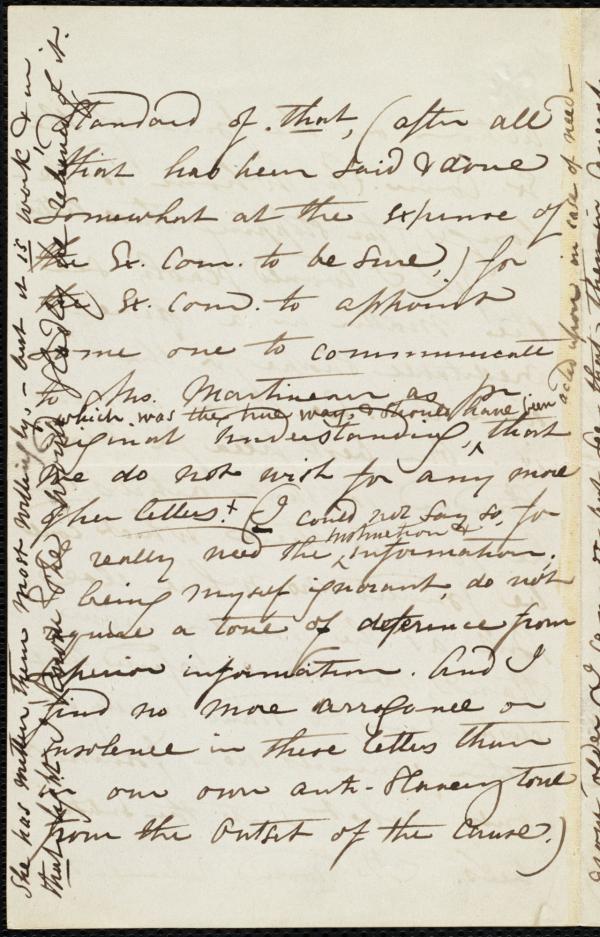 Standard of that, (after all
that has been said & done
somewhat at the expense of
the Ex. Com. to be sure,) for
the Ex. Com. to appoint
some one to communicate
to Mrs. Martineau as pr
which was the true way, & should have been
acted upon in case of need
original understanding, that
we do not wish for any more
of her letters.+ (I could not say so, for
I really need the
instruction &
information.
being myself ignorant, do not
require a tone of deference from
superior information. And I
find no more arrogance or
insolence in these letters than
in our own anti-Slavery tone
from the outset of the Cause.)
She has written them most willingly, – but it is work, & in
that light I know she would gladly be relieved of it.